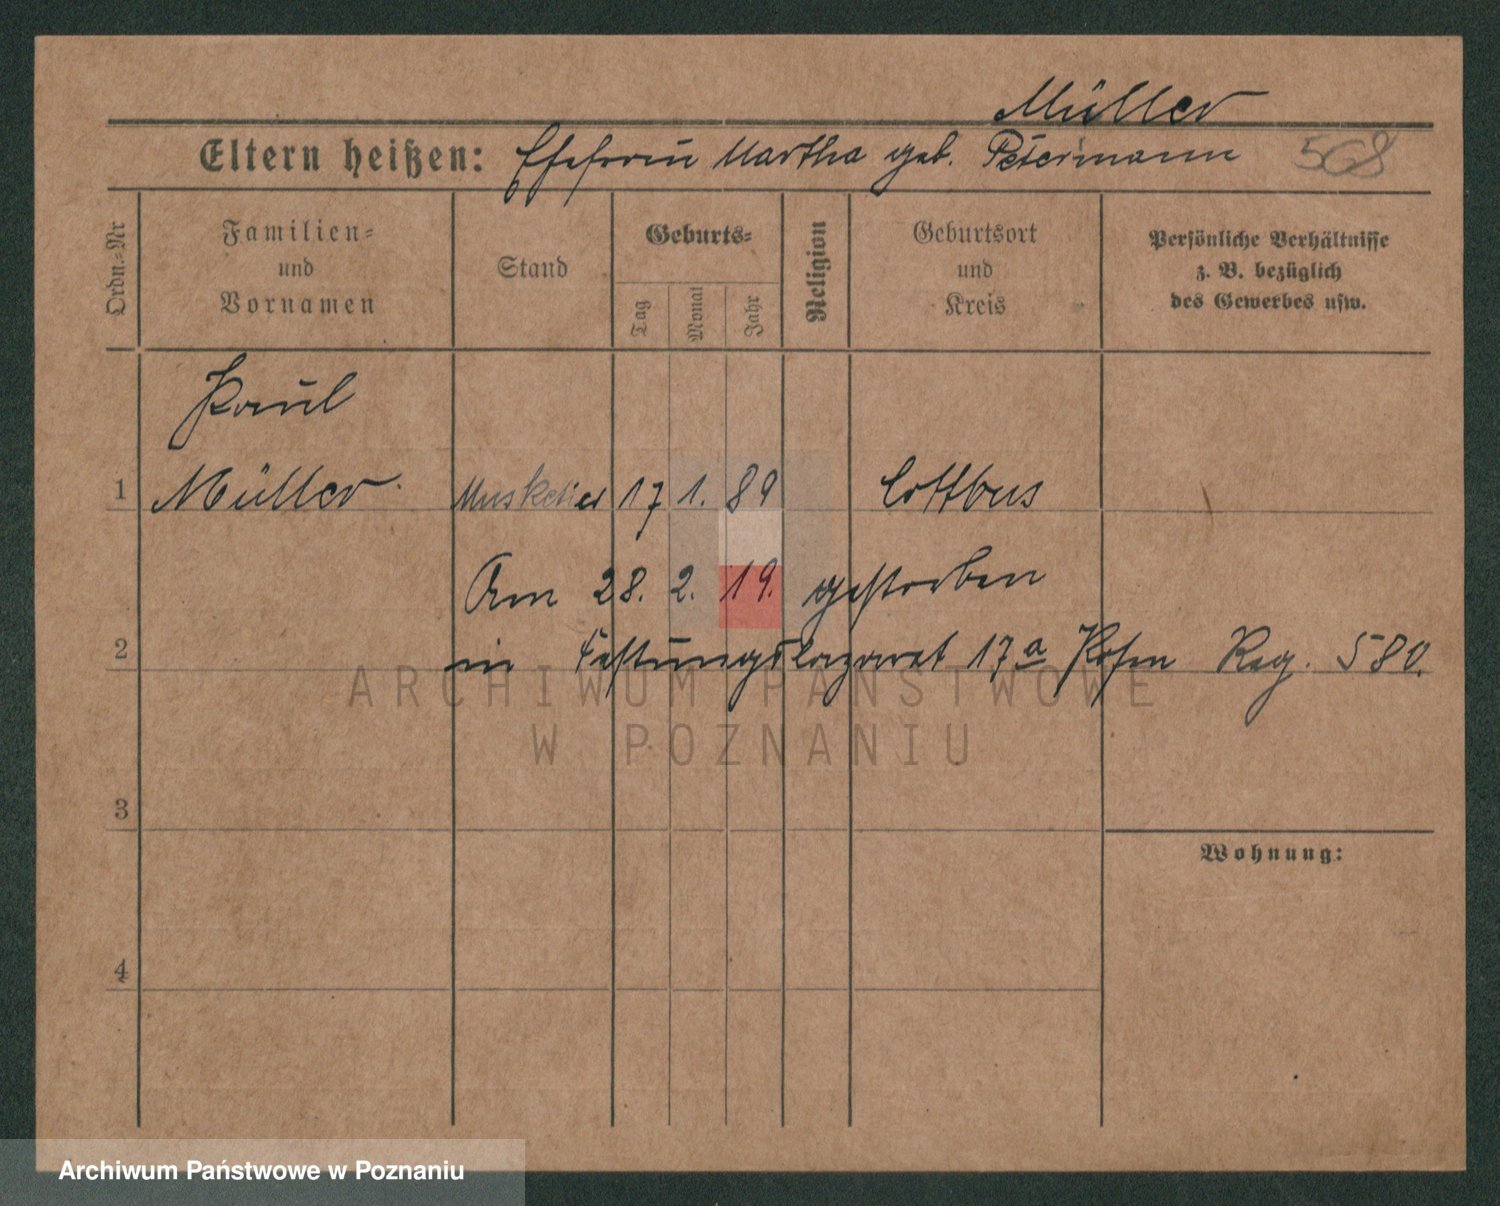 Müller
Eltern heißen: Ehefrau Martha geb. Petermann 568
Ordn.-Nr
Familien-
und
Vornamen
Stand
Geburts-
Tag
Monat
Jahr
Religion
Geburtsort
und
Kreis
Persönliche Verhältnisse
z. B. bezüglich
des Gewerbes usw.
Paul
1 Müller Musketier 17 1. 89 Cottbus
Am 28. 2. 19. gestorben
2 im Festungslazarat 17a Posen Reg. 580.
ARCHIWUM PAŃSTWOWE
W POZNANIU
3
Wohnung:
4
Archiwum Państwowe w Poznaniu